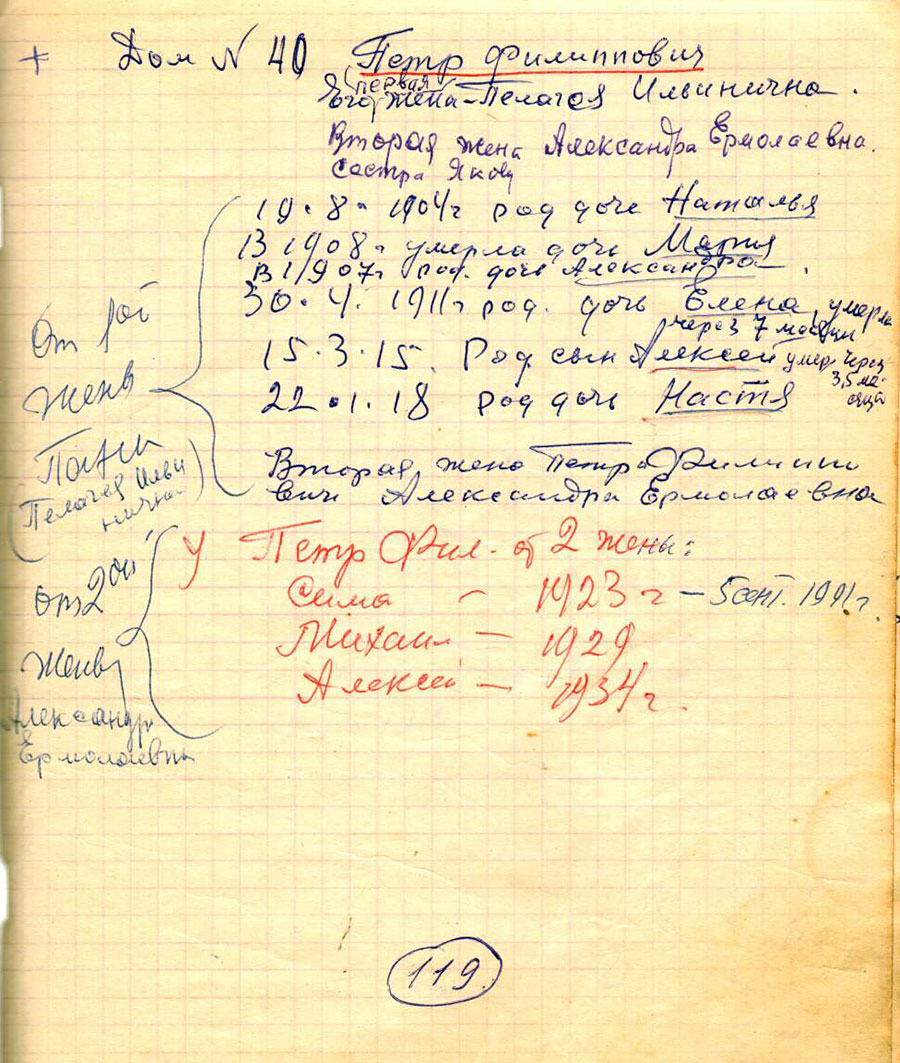 + Дом N 40 Петр Филиппович
Его первая жена - Пелагея Ильинична.
Вторая жена Александра Ермолаевна.
сестра Якову
19.8. 1904г род дочь Наталья
В 1908г умерла дочь Мария
В 1907г род. дочь Александра.
30.4. 1911г род. дочь Елена, умерла
через 7 месяцы
15.3.15. Род сын Алексей умер через
3,5 ме-
сяца
22.1.18 род дочь Настя
Вторая жена Петра Филиппо
вич Александра Ермолаевна
От 1ой
жены
(Пелагея Ильи
нична)
У Петр Фил. от 2 жены:
Сима - 1923г - 5 сент. 1991г.
Михаил - 1929
Алексей - 1934г.
От 2ой
жены
Александр
Ермолаевны
119.